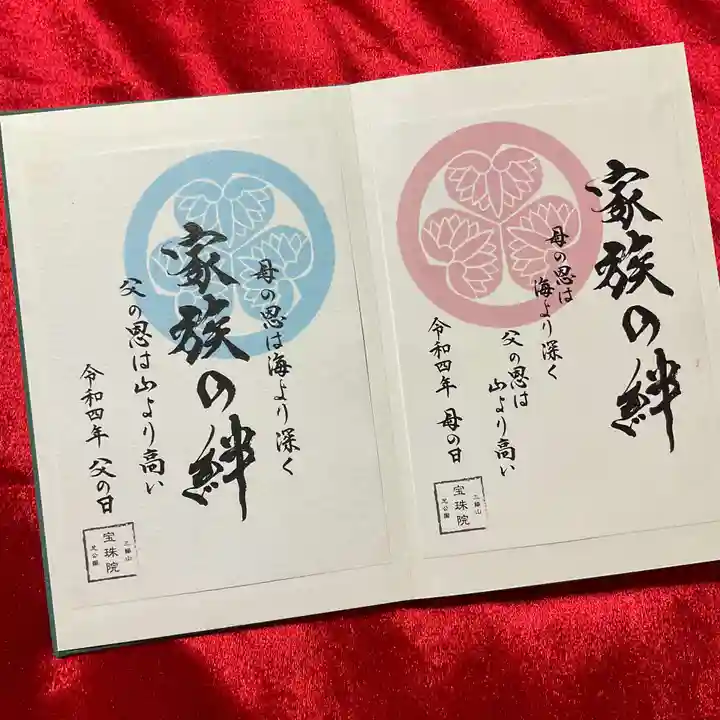 家族の絆
母の恩は
海より深く
父の恩は
山より高い
令和四年 母の日
三縁山
宝珠院
芝公園
母の恩は海より深く
家族の絆
父の恩は山より高い
令和四年 父の日
三縁山
宝珠院
芝公園